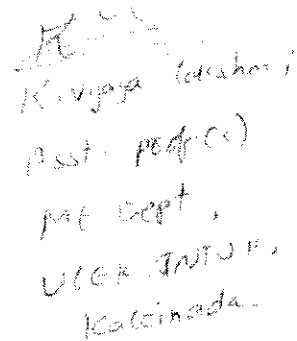 K. Vijaya Lakshmi
Asst. Prof (c)
ME Dept,
UCEK JNTUK,
Kakinada.